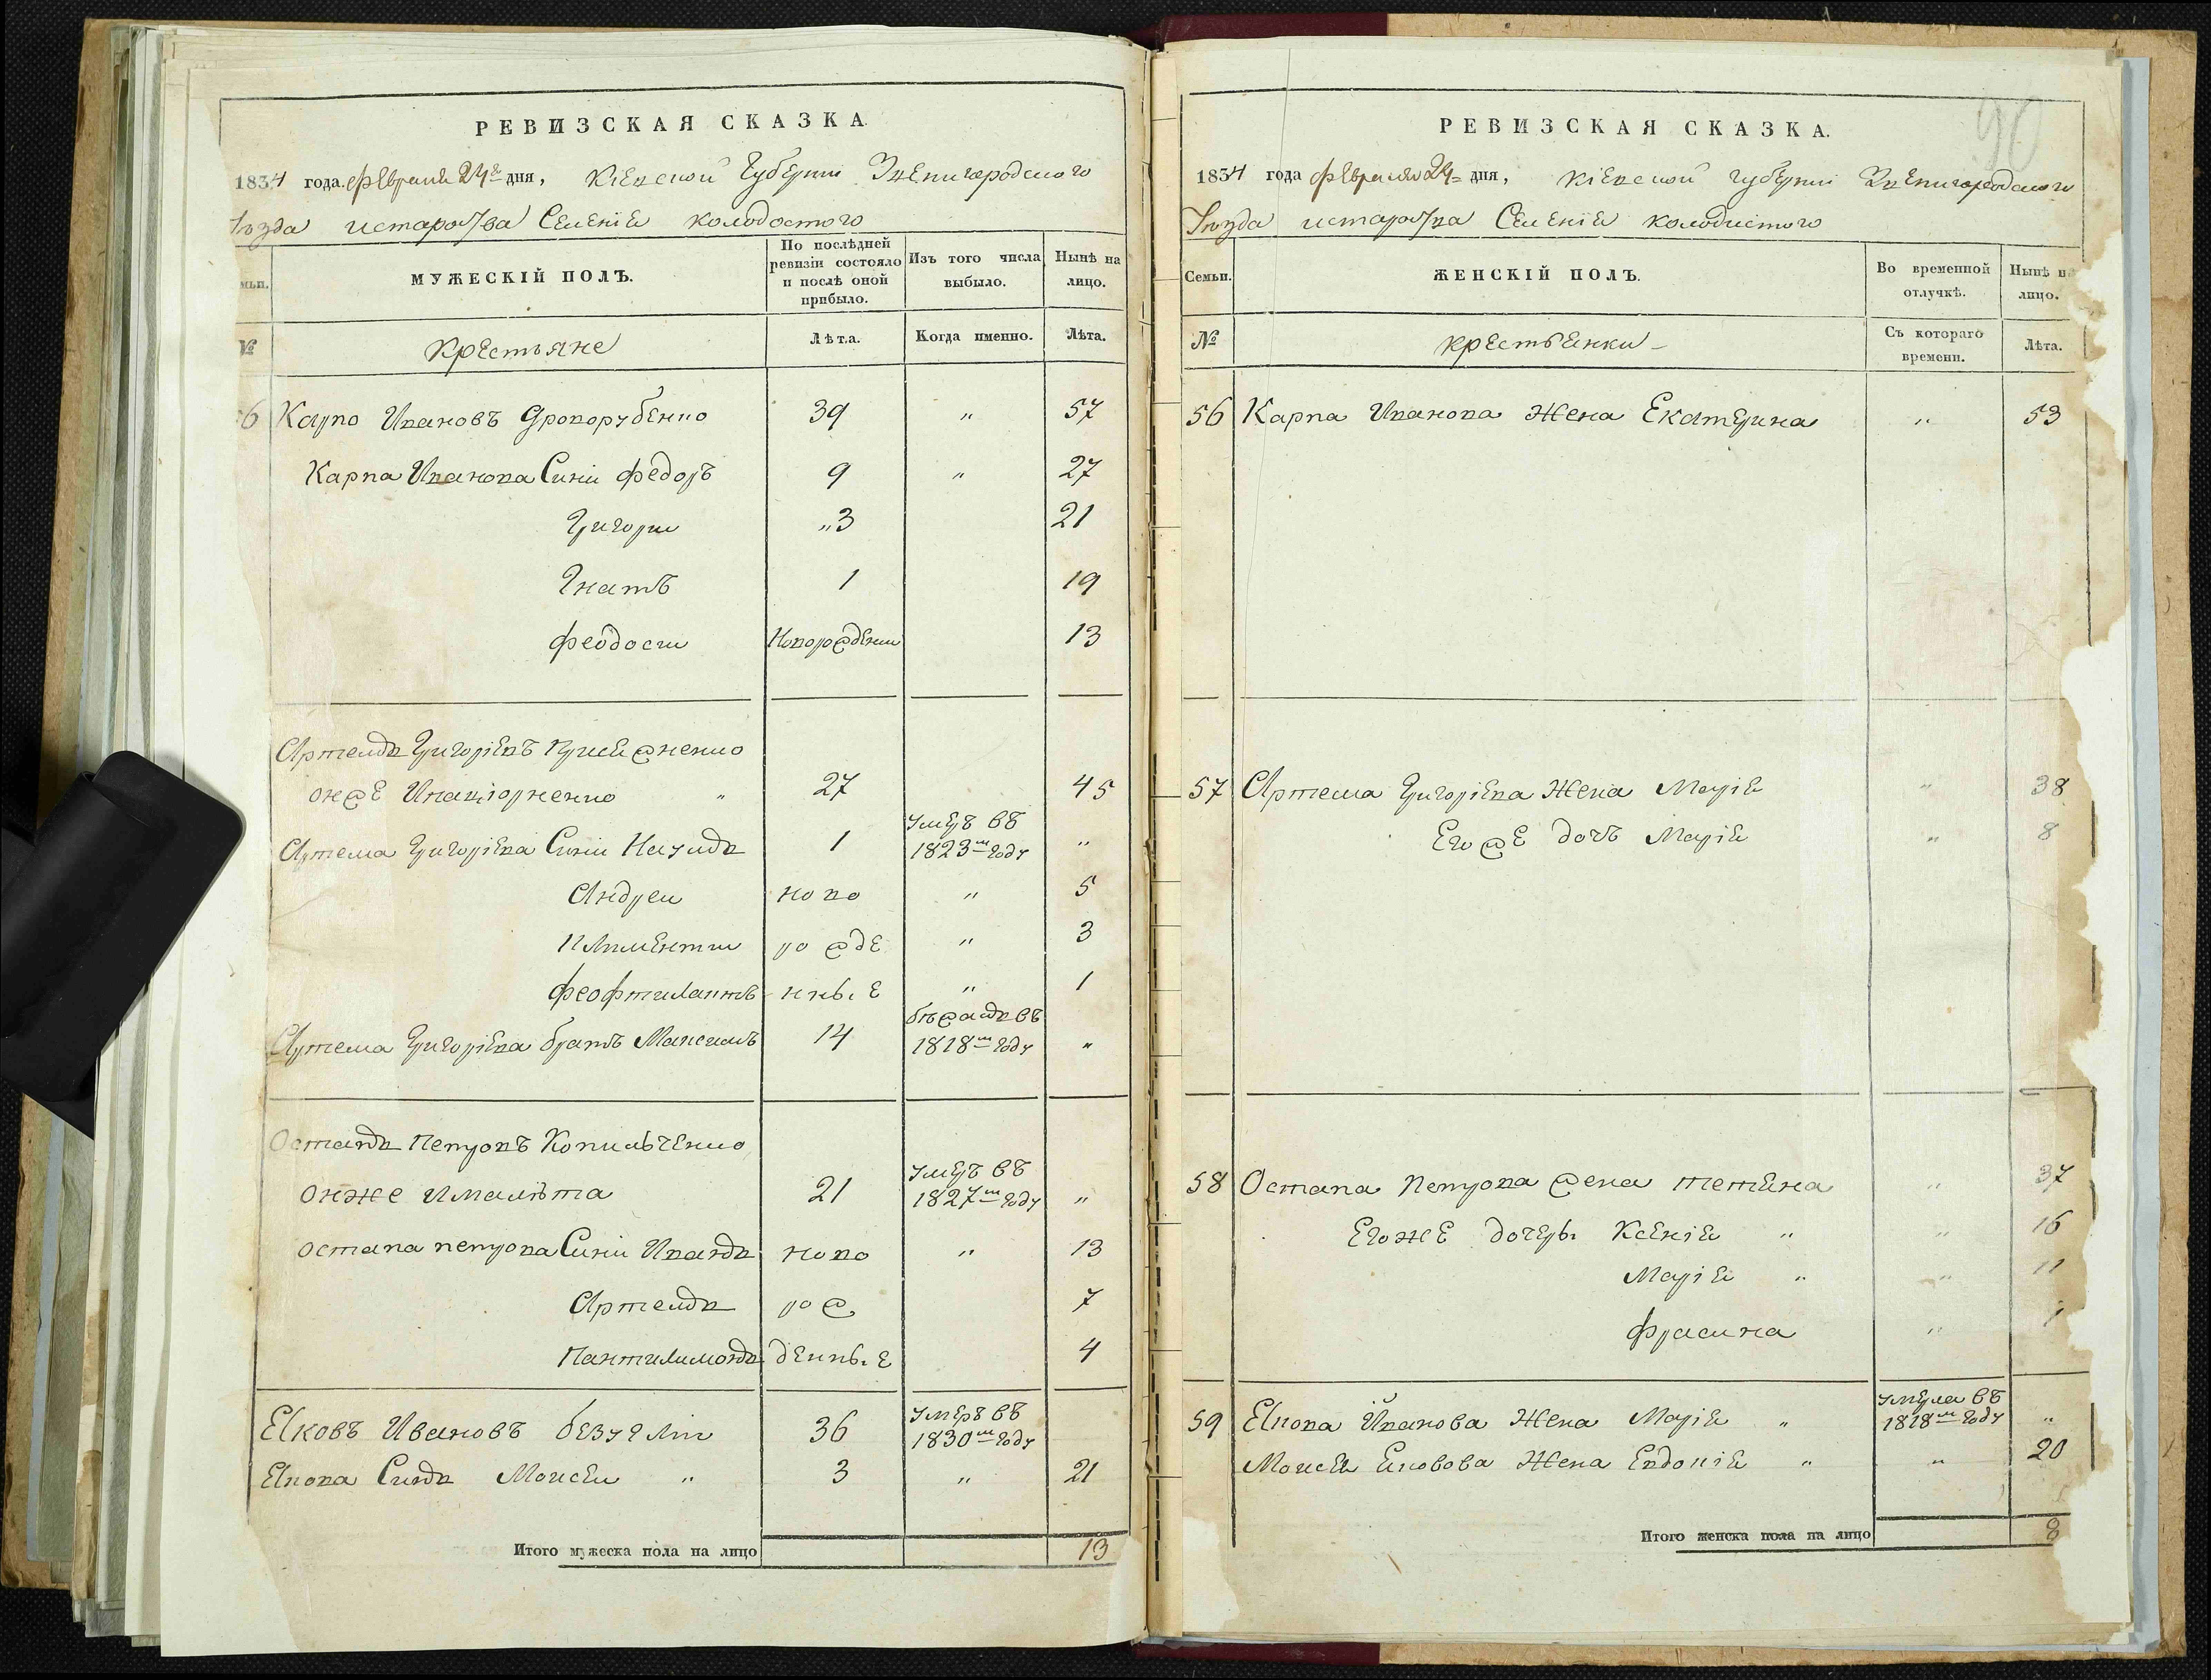 РЕВИЗСКАЯ СКАЗКА
1834 года февраля 24 дня, Кіевской Губерніи Звенигородского
Уѣзда истароства Селенія колодостого
мьи.
МУЖЕСКІЙ ПОЛЪ.
По послѣдней ревизіи состояло и послѣ оной прибыло.
Изъ того числа выбыло.
Нынѣ на лицо.
№ Крестьяне Лѣта. Когда именно. Лѣта.
6 Карпо Ивановъ Дроворубенко 39 " 57
Карпа Иванова Синіи Федоръ 9 " 27
Григори "3 21
Гнатъ 1 19
Феодоси Новорожденни 13
Артемъ Григоріевъ
онже 27 45
Артема Григоріева Синіи Наумъ 1 умеръ въ 1823м году "
Андреи ново " 5
Климентии рожде " 3
Феофтилактъ нныѣ " 1
Артема Григоріева братъ Максимъ 14 бѣжалъ въ 1818м году "
Остапъ Петровъ Копильченко
онже Ималѣта 21 умеръ въ 1827м году "
Остапа петрова Синіи Иванъ ново " 13
Артемъ рож 7
Пантилимонъ денные 4
Яковъ Ивановъ 36 умеръ въ 1830м году
Якова Синъ Моисеи " 3 " 21
Итого мужеска пола на лицо 13
90
РЕВИЗСКАЯ СКАЗКА.
1834 года февраля 24 дня, Кіевской Губерніи Звенигородского
Уѣзда истароства Селенія колодистого
Семьи.
ЖЕНСКІЙ ПОЛЪ.
Во временной отлучкѣ.
Нынѣ на лицо.
№ крестьянки Съ котораго времени. Лѣта.
56 Карпа Иванова Жена Екатерина " 53
57 Артема Григоріева Жена Марія " 38
Егоже дочъ Марія " 8
58 Остапа Петрова жена тетяна " 37
Егоже дочеры Ксенія " " 16
Марія " " 11
Фрасина " 1
59 Якова Иванова Жена Марія " умерла въ 1818м году "
Моисея Яковова Жена Евдокія " " 20
Итого женска пола на лицо 8